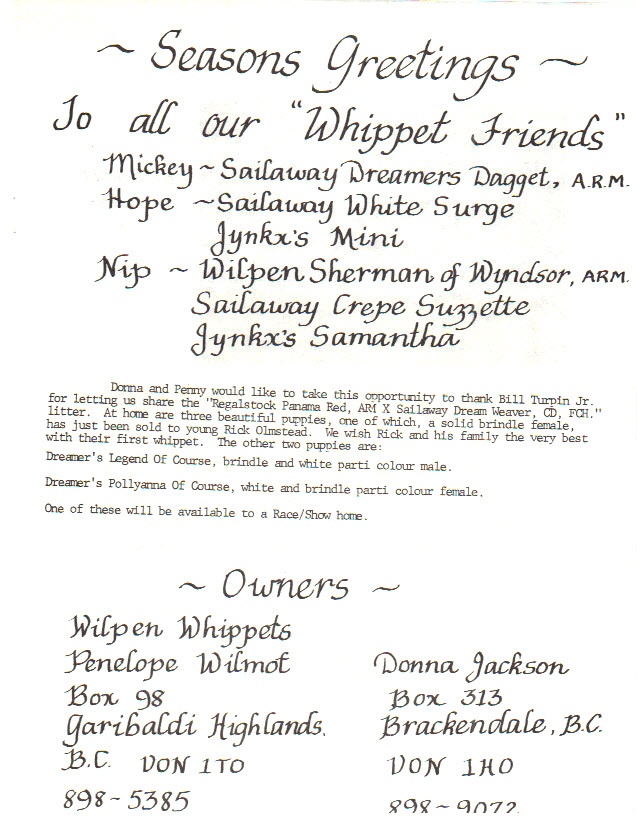 ~ Seasons Greetings ~
To all our "Whippet Friends"
Mickey ~ Sailaway Dreamers Dagget, A.R.M.
Hope ~ Sailaway White Surge
Jynkx's Mini
Nip ~ Wilpen Sherman of Wyndsor, ARM.
Sailaway Crepe Suzzette
Jynkx's Samantha
Donna and Penny would like to take this opportunity to thank Bill Turpin Jr.
for letting us share the "Regalstock Panama Red, ARM X Sailaway Dream Weaver, CD, FCH."
litter. At home are three beautiful puppies, one of which, a solid brindle female,
has just been sold to young Rick Olmstead. We wish Rick and his family the very best
with their first whippet. The other two puppies are:
Dreamer's Legend Of Course, brindle and white parti colour male.
Dreamer's Pollyanna Of Course, white and brindle parti colour female.
One of these will be available to a Race/Show home.
~ Owners ~
Wilpen Whippets
Penelope Wilmot
Box 98
Garibaldi Highlands.
B.C. VON 1TO
898-5385
Donna Jackson
Box 313
Brackendale, B.C.
VON 1HO
898-9072